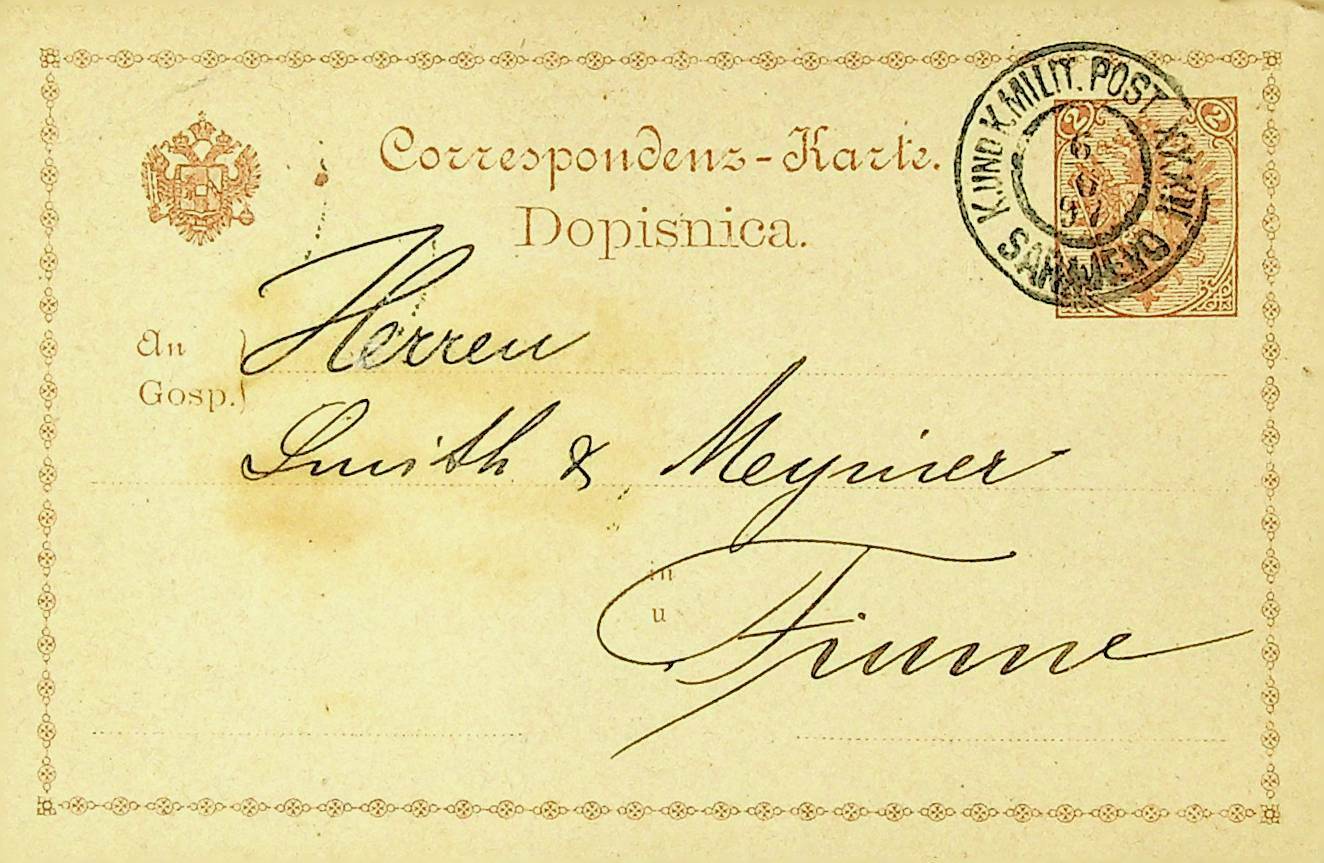 Correspondenz-Karte.
Dopisnica.
K. UND K. MILIT. POST
SARAJEVO
2
2
An
Gosp.
Herren
Smith & Meynier
in
u
Fiume